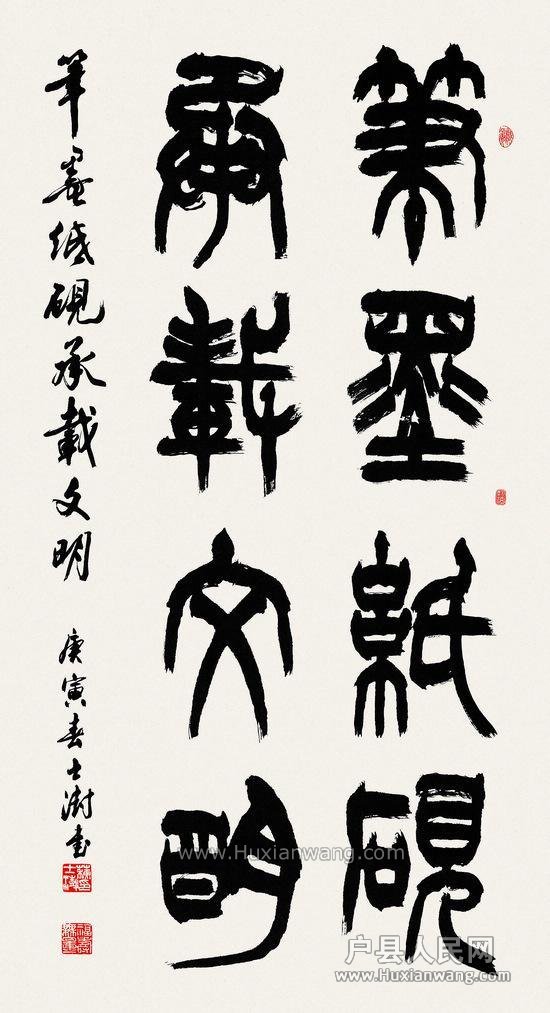 筆墨紙硯
承載文明
筆墨紙硯承載文明
庚寅春士澍書
www.Huxianwang.com
户县人民网
www.Huxianwang.com